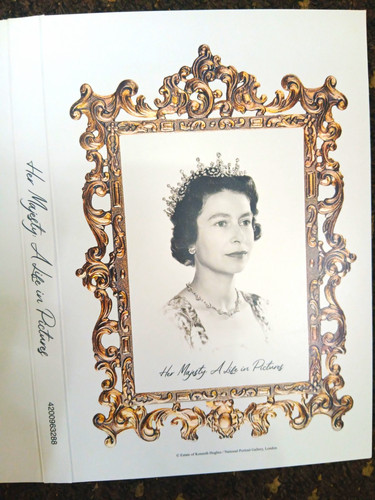 Her Majesty A Life in Pictures
4200963288
Her Majesty A Life in Pictures
© Estate of Kenneth Hughes / National Portrait Gallery, London